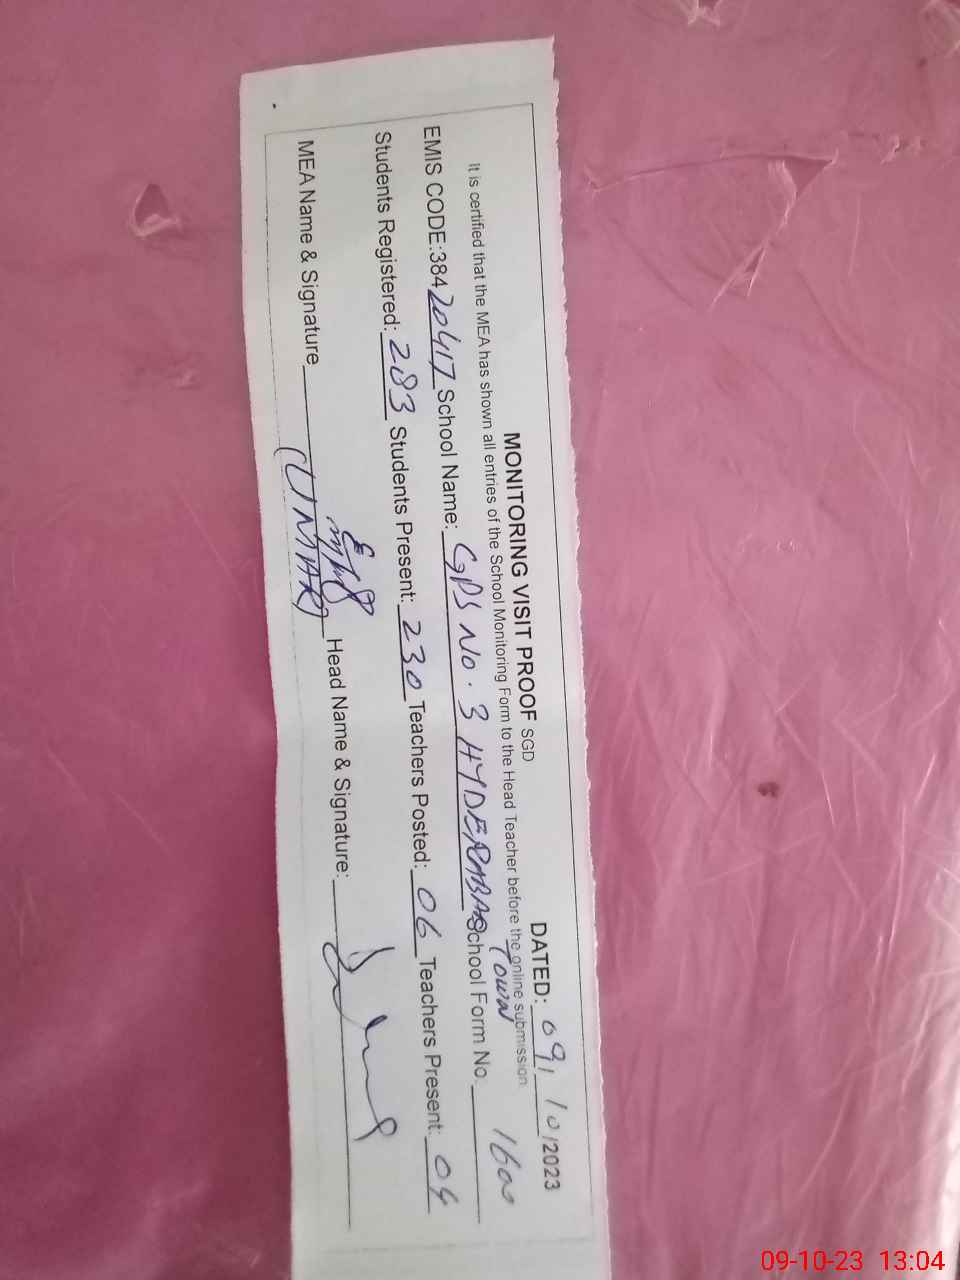 MONITORING VISIT PROOF SGD DATED: 09/10/2023
It is certified that the MEA has shown all entries of the School Monitoring Form to the Head Teacher before the online submission
EMIS CODE:38420417 School Name: GPS No. 3 HYDERABAD School Form No. 1600
Town
Students Registered: 283 Students Present: 230 Teachers Posted: 06 Teachers Present: 04
MEA Name & Signature (UMAR) Head Name & Signature:
09-10-23 13:04